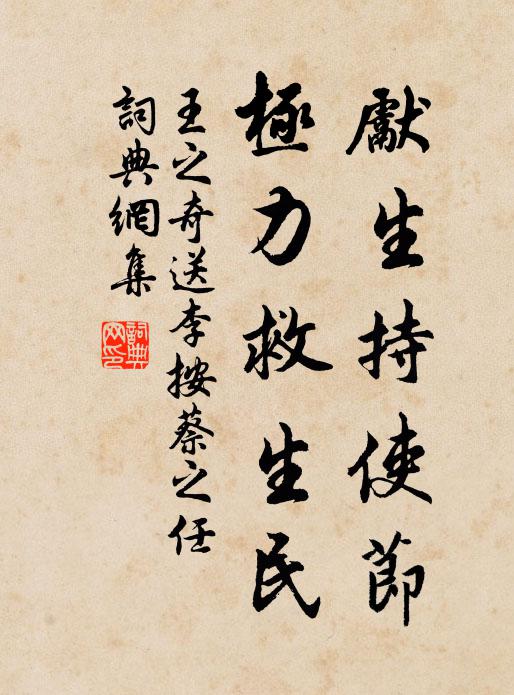 獻生持使節
極力救生民
王之奇送李按蔡之任
詞典網集
詞典網印